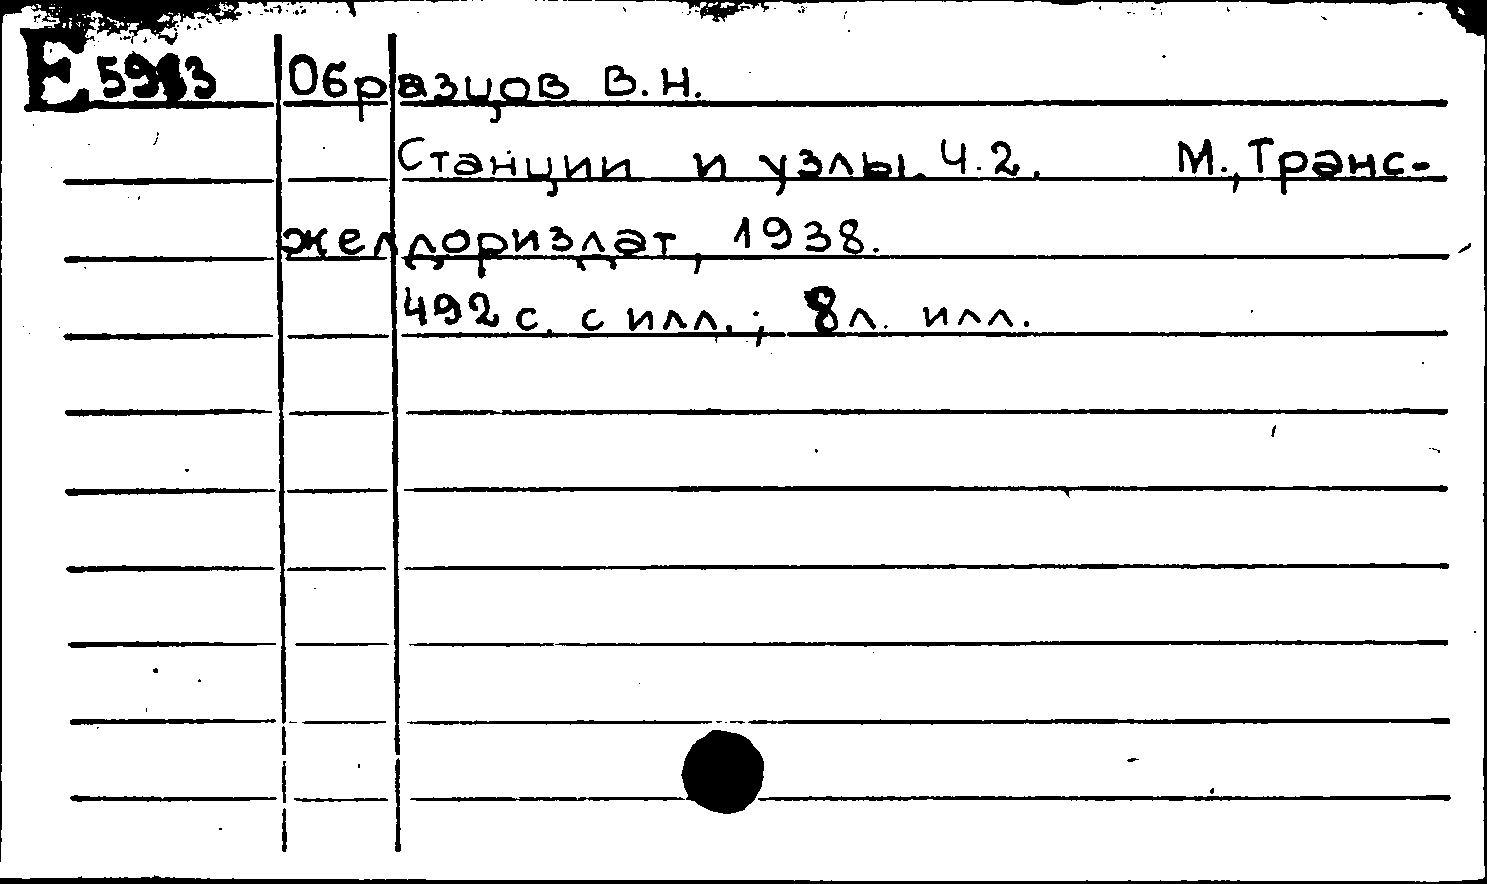 Е Образцов В.Н.
Станции и узлы. Ч.2. М., Транс-
желдориздат, 1938.
492 с. с илл.; 8л. илл.